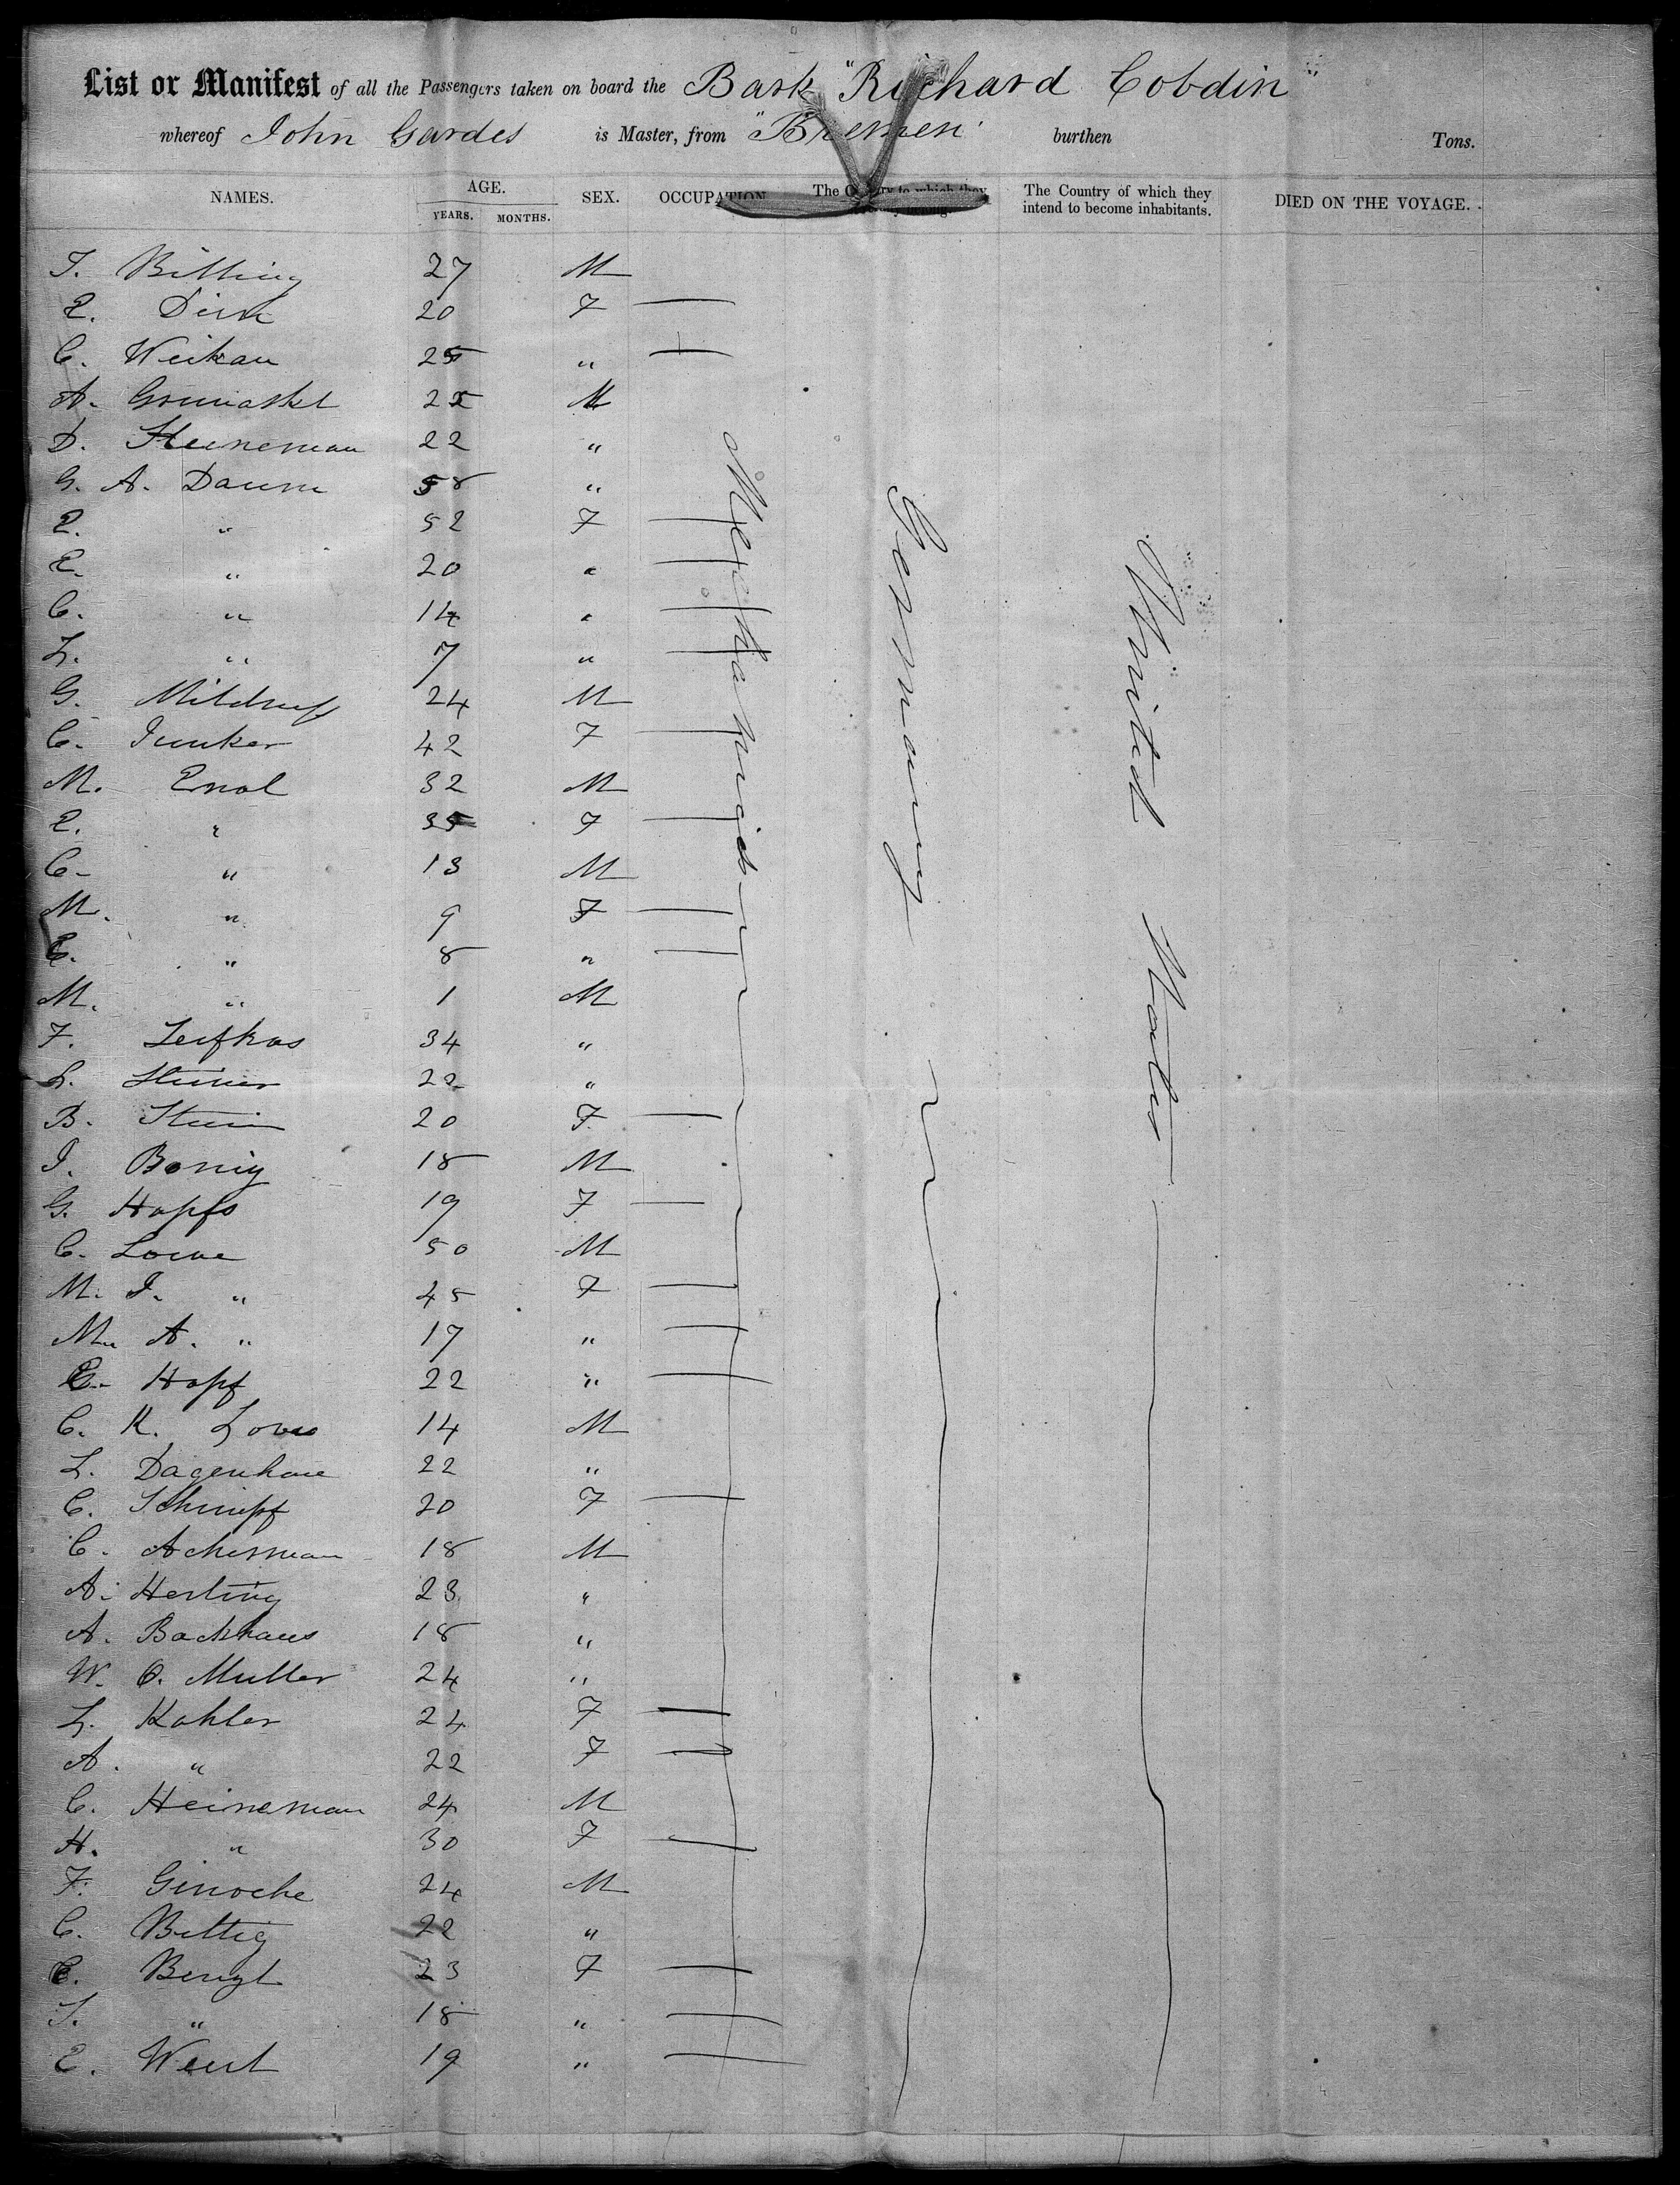 List or Manifest of all the Passengers taken on board the Bark "Richard Cobdin"
whereof John Gardes is Master, from "Bremen" burthen Tons.
NAMES. AGE. SEX. OCCUPATION The Country to which they The Country of which they intend to become inhabitants. DIED ON THE VOYAGE.
YEARS. MONTHS.
Mechanics Germany United States
T. Billing 27 M
E. Dirk 20 F —
C. Weikau 25 " —
A. 25 M
D. Heineman 22 "
G. A. Daum 58 "
E. " 52 F —
E. " 20 " —
C. " 14 " —
L. " 7 " —
G. 24 M
C. Junker 42 F —
M. Enol 32 M
E. " 35 F —
C. " 13 M
M. " 9 F —
E. " 8 " —
M. " 1 M
F. Leifkas 34 "
L. 22 "
B. Stein 20 F —
J. Bonig 18 M
G. Hopfs 19 F —
C. Loewe 50 M
M. J. " 45 F —
M. A. " 17 " —
E. Hopf 22 " —
C. K. Loves 14 M
L. Dagenhare 22 "
C. Schimpf 20 F —
C. Ackerman 18 M
A. Herting 23 "
A. Backhaus 18 "
W. O. Muller 24 "
L. Kohler 24 F —
A. " 22 F —
C. Heineman 24 M
H. " 30 F —
F. Ginoche 24 M
C. Bittig 22 "
C. Bengt 23 F —
T. " 18 " —
E. Went 19 " —